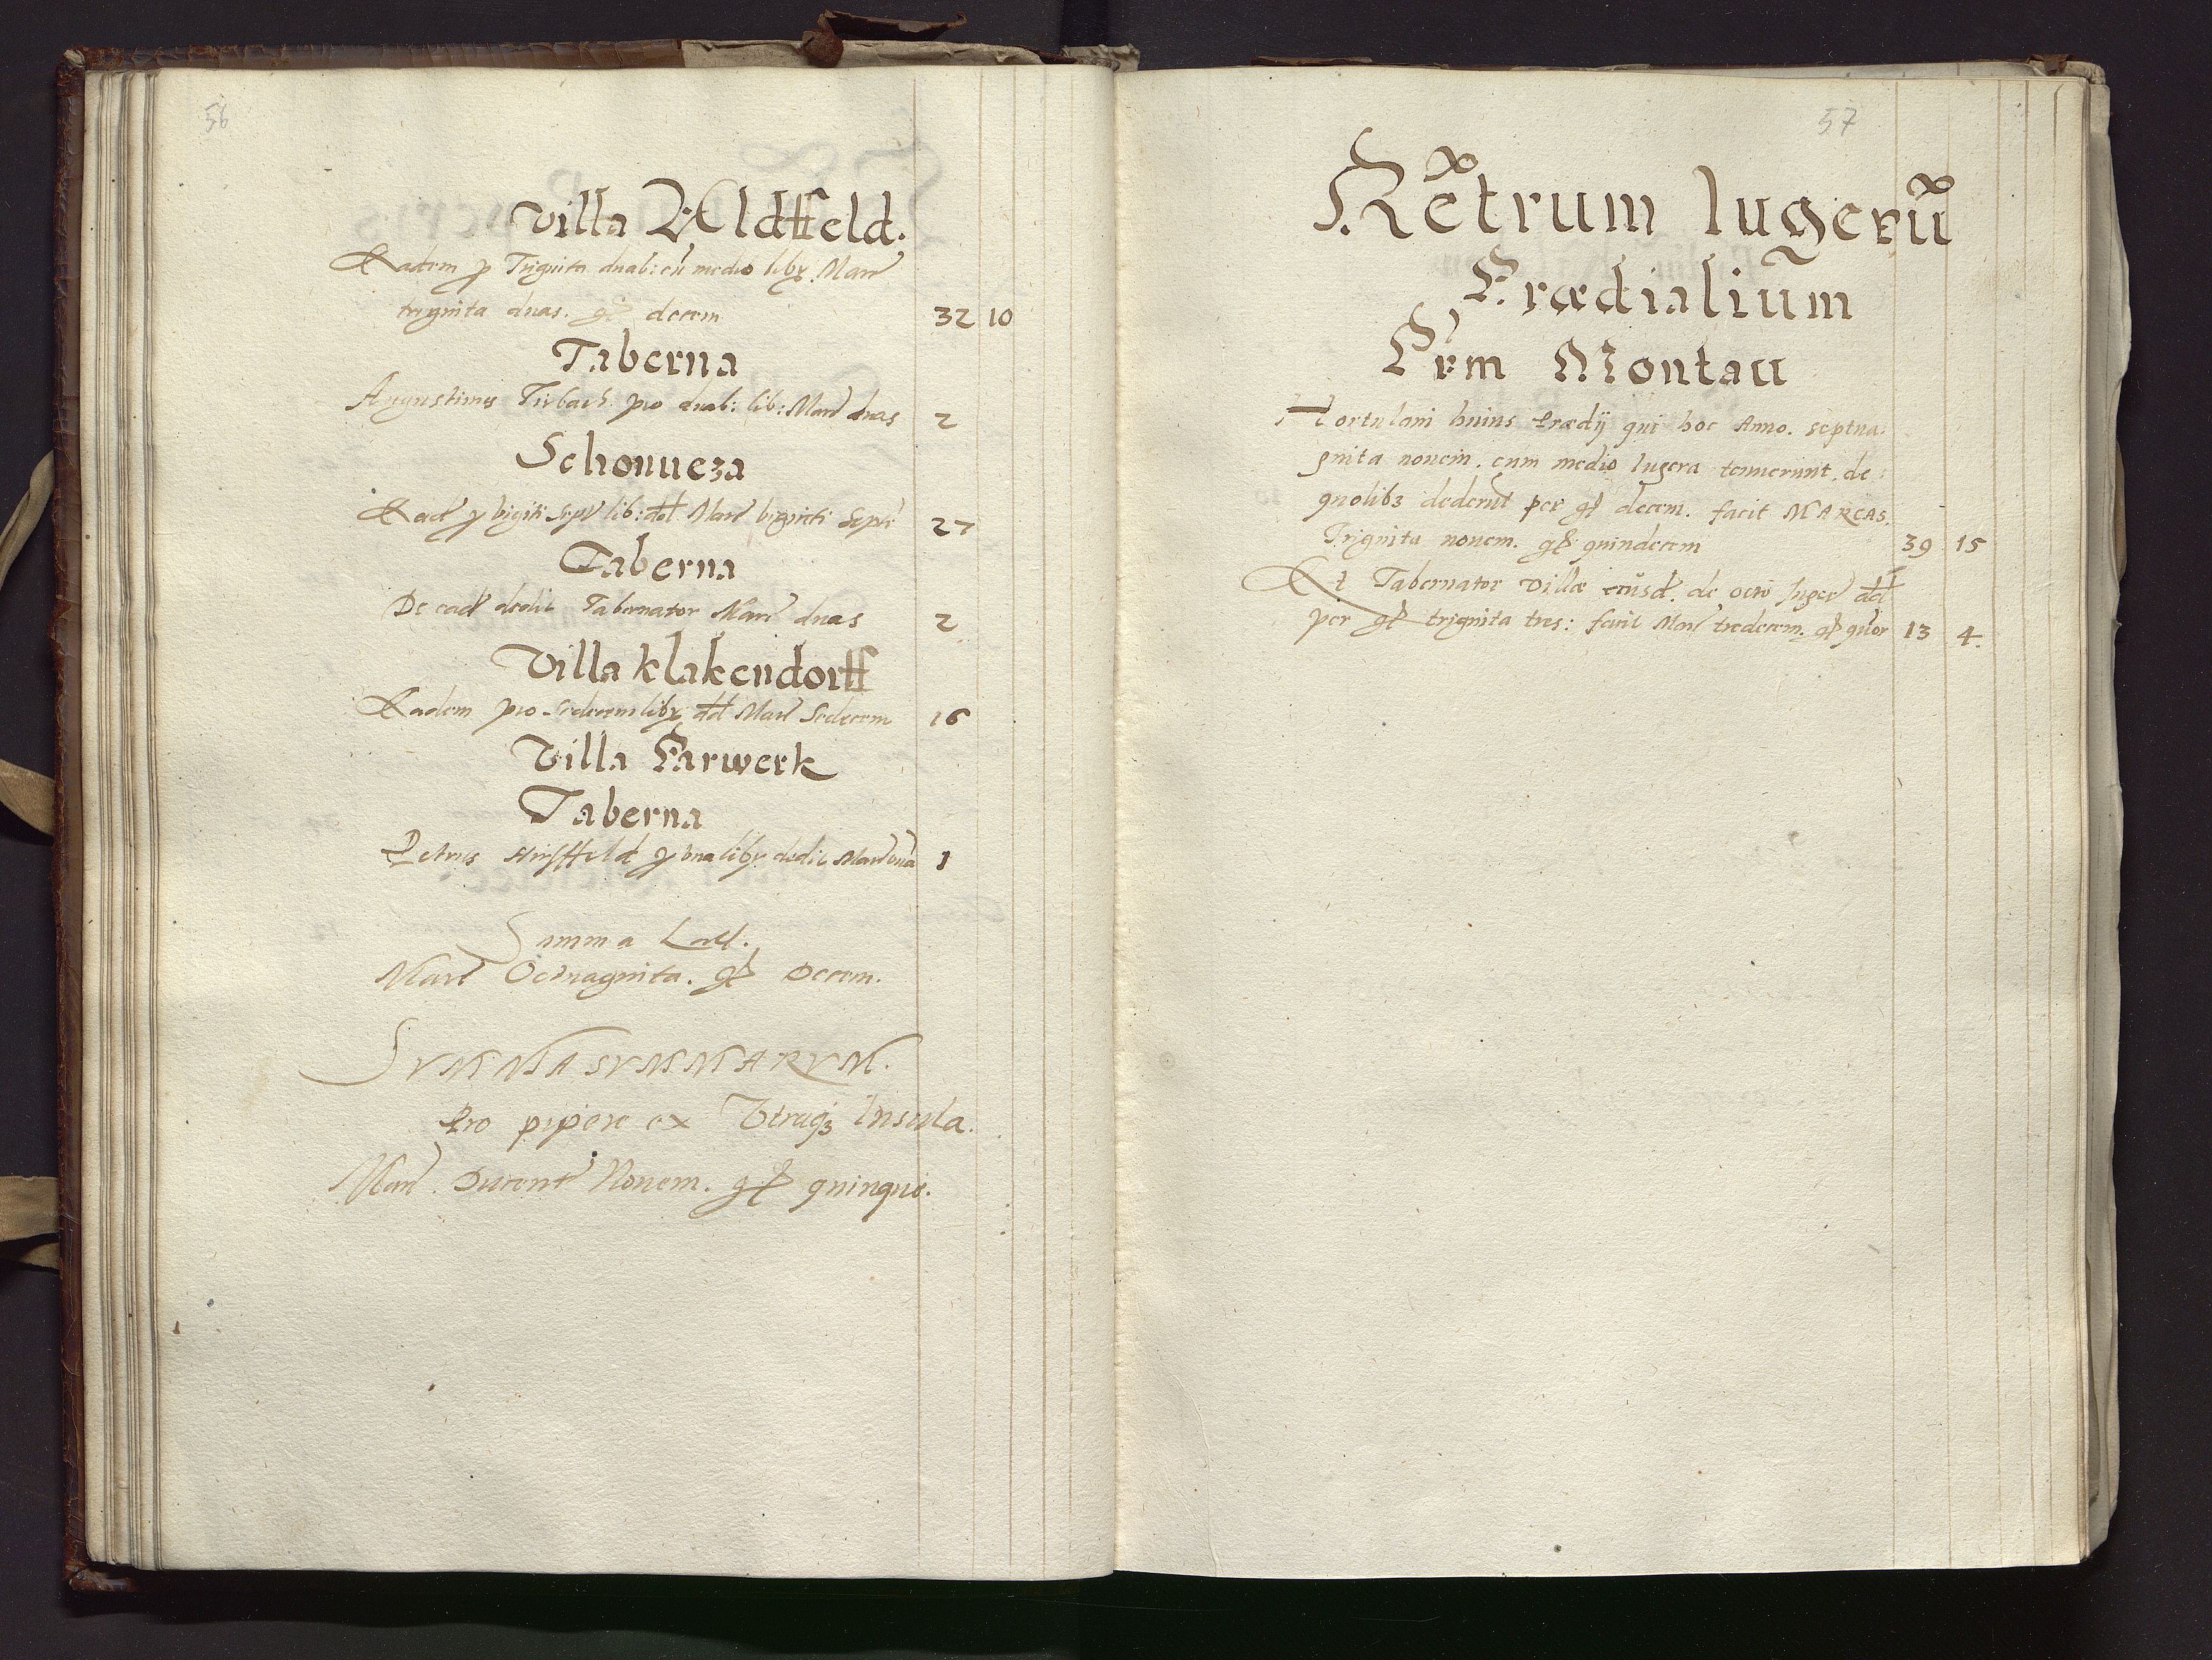 56
Villa Aldtfeld.
Eadem p Triginta duab: cū medio libr. Marc
triginta duas. gr decem 32 10
Taberna
Augustinus pro duab: lib: Marc duas 2
Schonueza
Ead p viginti septē lib: ddt Marc viginti septē 27
Taberna
De ead dedit Tabernator Marc duas 2
Villa klakendorff
Eadem pro Sedecem libr ddt Marc Sedecem 16
Villa Farwerk
Taberna
Petrus Hirsffeld p vna libr dedit Marc vnā 1
Summa
Marc Octuaginta. gr Decem.
SVMMA SVMMARVM.
Pro pipere ex Vtraq3 Insula.
Marc Ducent Nouem. gr quinque.
57
Rētrum Iugerū
Prædialium
Prm Montau
Hortulani huius Prædij qui hoc Anno. septua:
ginta nouem. cum medio Iugera tenuerunt. de:
quolib3 dederūt per gr decem. facit MARCAS.
Triginta nouem. gr quindecem 39 15
Et Tabernator Villæ eiusd. de octo Iuger ddt
per gr triginta tres: facit Marc tredecem. gr quor 13 4.